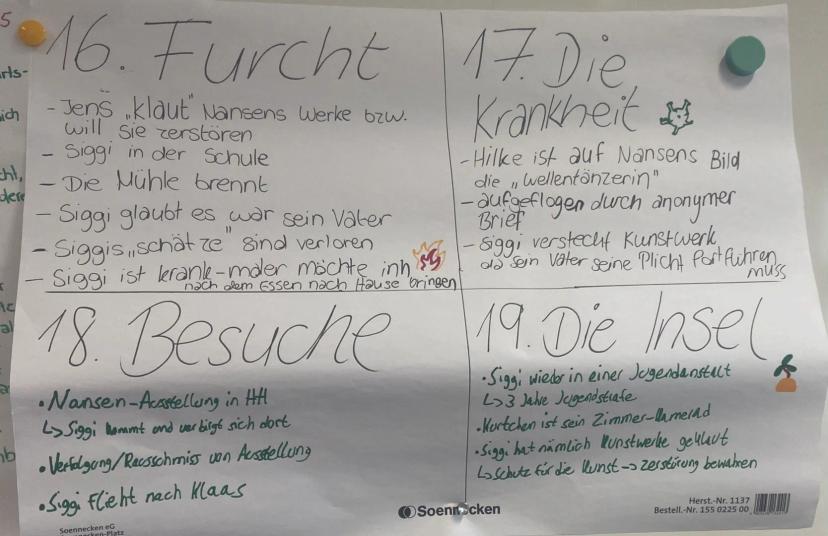 16. Furcht
- Jens „klaut" Nansens Werke bzw.
will sie zerstören
- Siggi in der Schule
- Die Mühle brennt
- Siggi glaubt es war sein Vater
- Siggis „schätze" sind verloren
- Siggi ist krank-maler möchte inh
nach dem Essen nach Hause bringen
17. Die
Krankheit
- Hilke ist auf Nansens Bild
die „wellentänzerin"
- aufgeflogen durch anonymer
Brief
- Siggi versteckt Kunstwerk
da sein Vater seine Plicht fortführen
muss
18. Besuche
• Nansen-Ausstellung in HH
↳ Siggi kommt und verbirgt sich dort
• Verfolgung/Rausschmiss von Ausstellung
• Siggi flieht nach Klaas
19. Die Insel
• Siggi wieder in einer Jugendanstalt
↳ 3 Jahre Jugendstrafe
• Kurtchen ist sein Zimmer-Kamerad
• Siggi hat nämlich Kunstwerke geklaut
↳ Schutz für die Kunst → zerstörung bewahren
Soennecken
Herst.-Nr. 1137
Bestell.-Nr. 155 0225 00
Soennecken eG